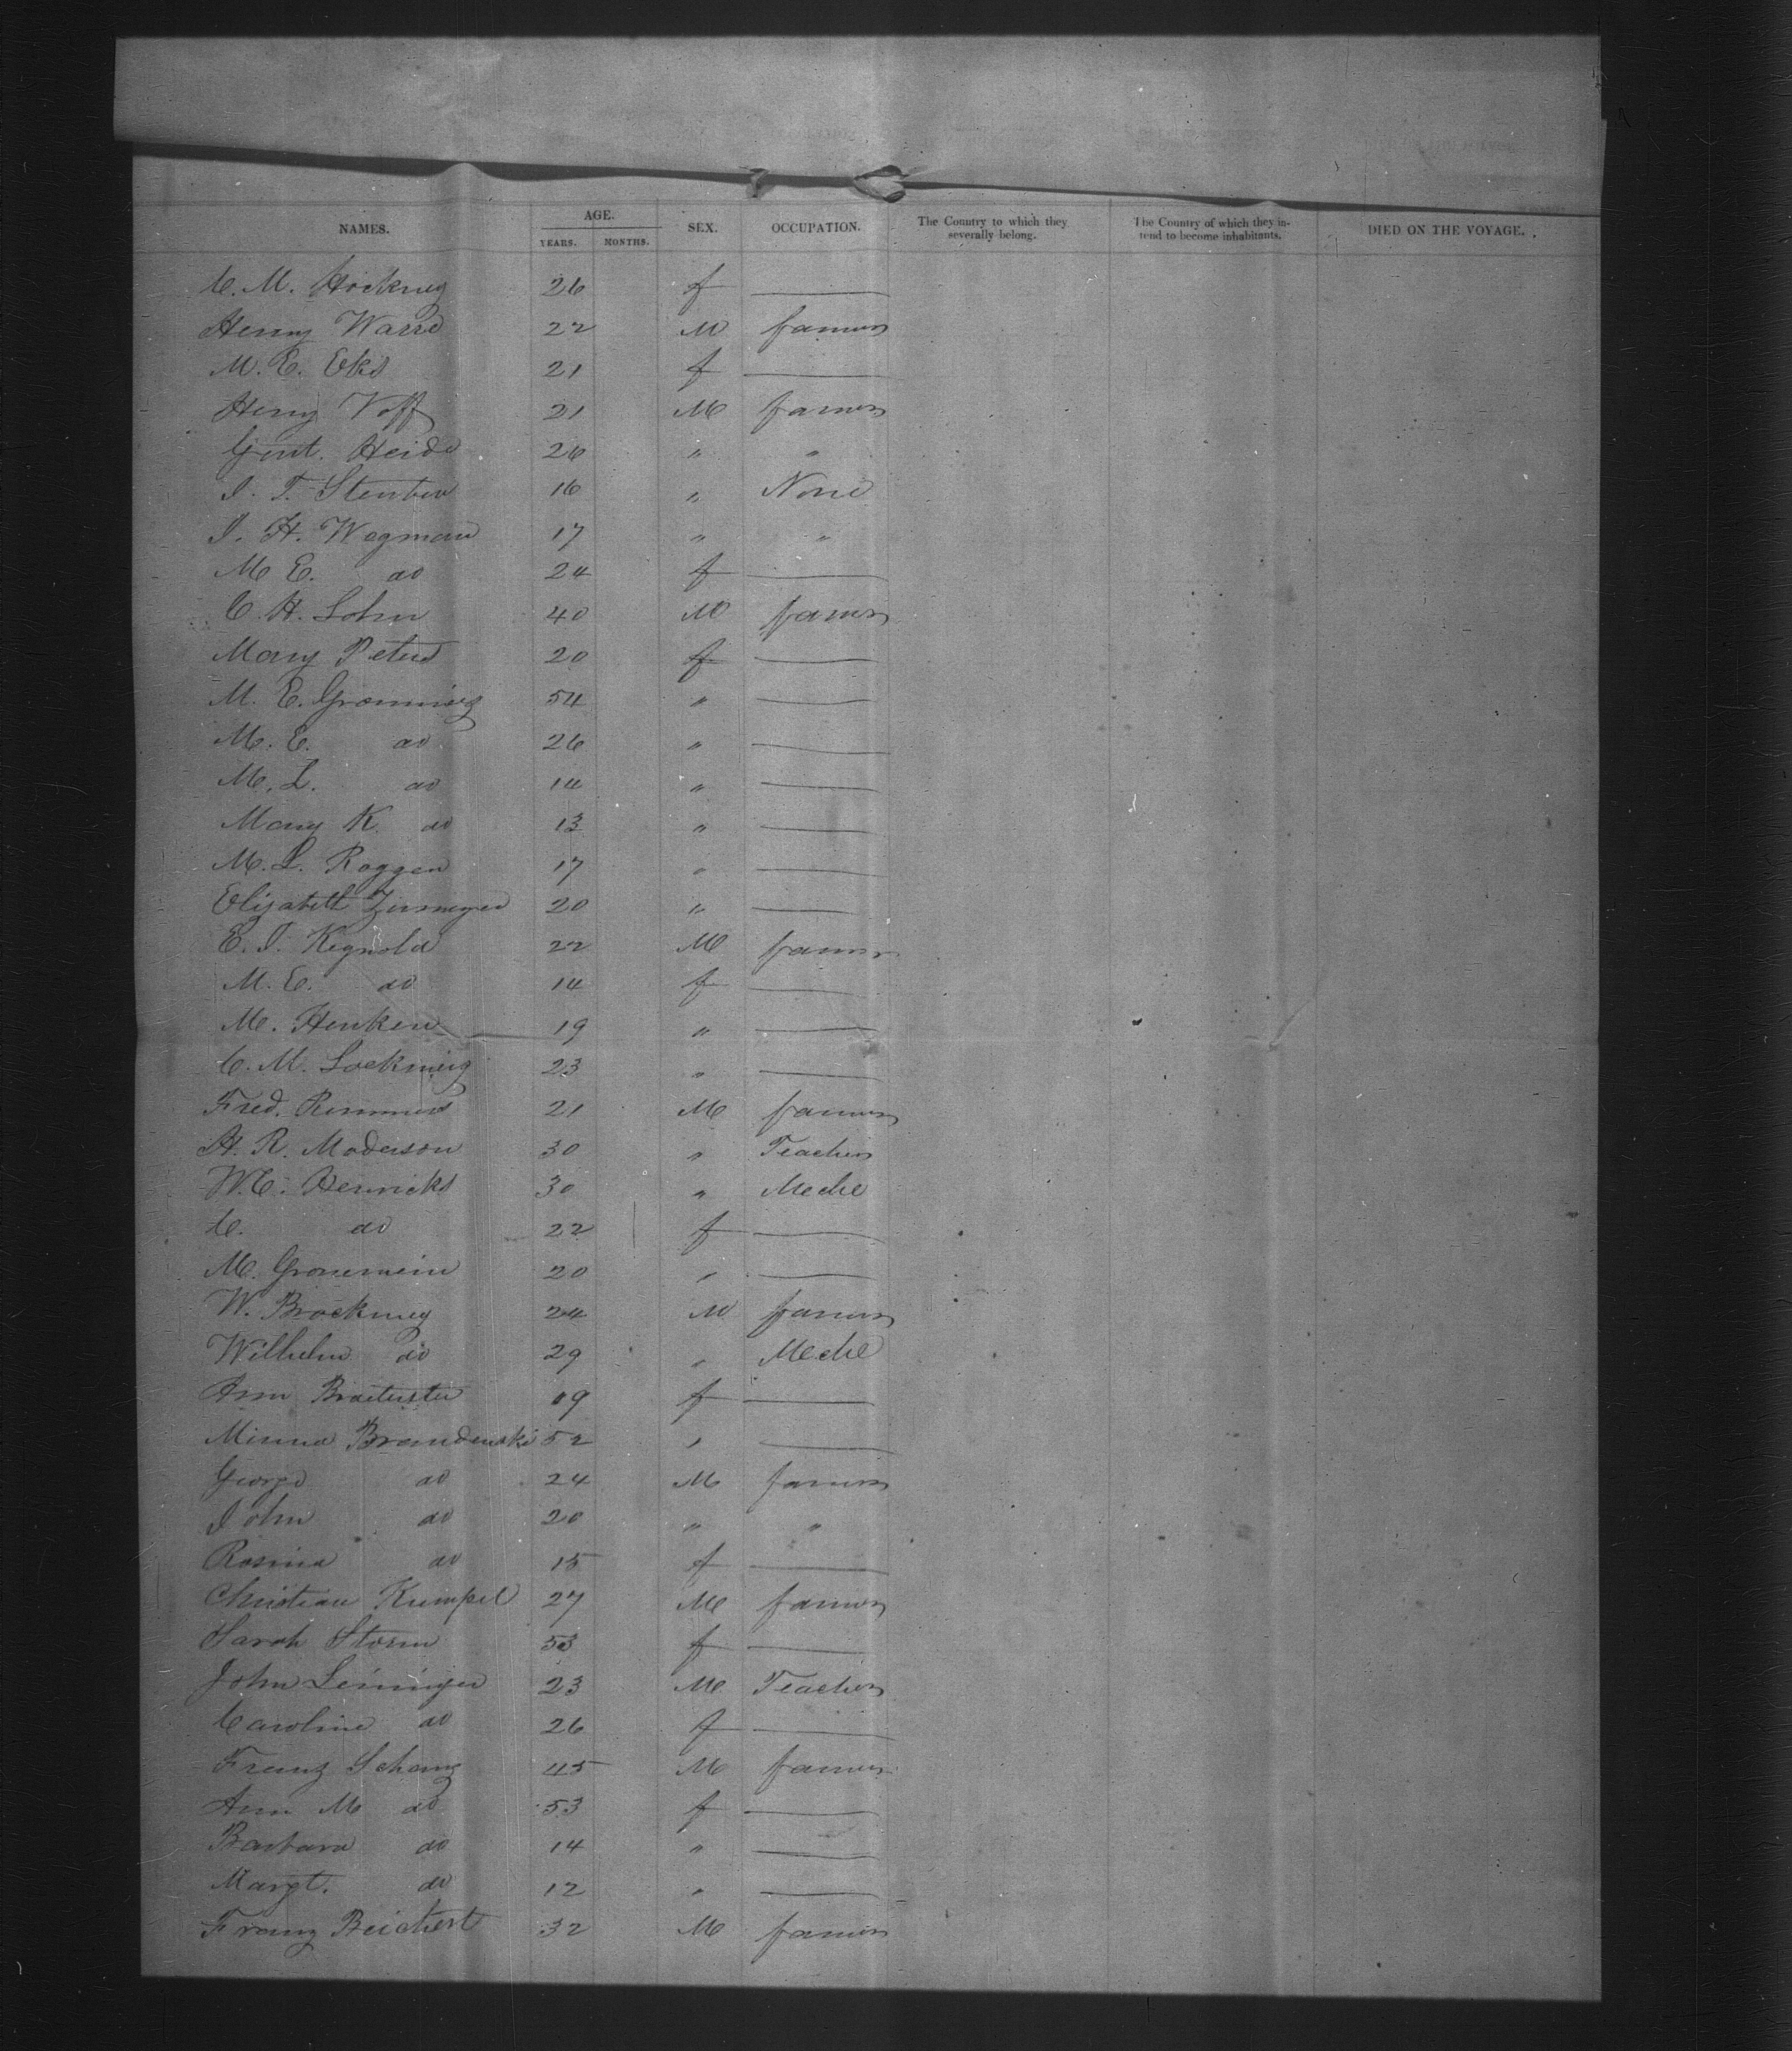 NAMES. AGE. SEX. OCCUPATION. The Country to which they severally belong. The Country of which they in- tend to become inhabitants. DIED ON THE VOYAGE.
YEARS. MONTHS.
C. M. 26 f —
Henry Warre 22 M farmer
M. E. Eks 21 f —
Henry Voff 21 M farmer
Heide 26 " "
I. T. Steuben 16 " None
I. H. Wegman 17 " "
M E. do 24 f —
C. H. Lohm 40 M farmer
Mary Peters 20 f —
M. E. Gronning 54 " —
M. E. do 26 " —
M. L. do 14 " —
Mary K. do 13 " —
M. L. Roggen 17 " —
Elisabeth 20 " —
E. I. Regnold 22 M farmer
M. E. do 14 f —
M. Henken 19 " —
C. M. 23 " —
Fred. Remmers 21 M farmer
H. R. Moderson 30 " Teacher
W. C. Henricks 30 " Meche
C. do 22 f —
M. Gronemein 20 " —
W. Brockmeg 24 M farmer
Wilhelm do 29 " Meche
Ann 19 f —
Minna Brandenski 52 " —
George do 24 M farmer
John do 20 " "
Rosina do 15 f —
Christian Kumpel 27 M farmer
Sarah Storm 53 f —
John Leininger 23 M Teacher
Caroline do 26 f —
Franz Schanz 45 M farmer
Ann M do 53 f —
Barbara do 14 " —
Margt. do 12 " —
Franz Beichert 32 M farmer